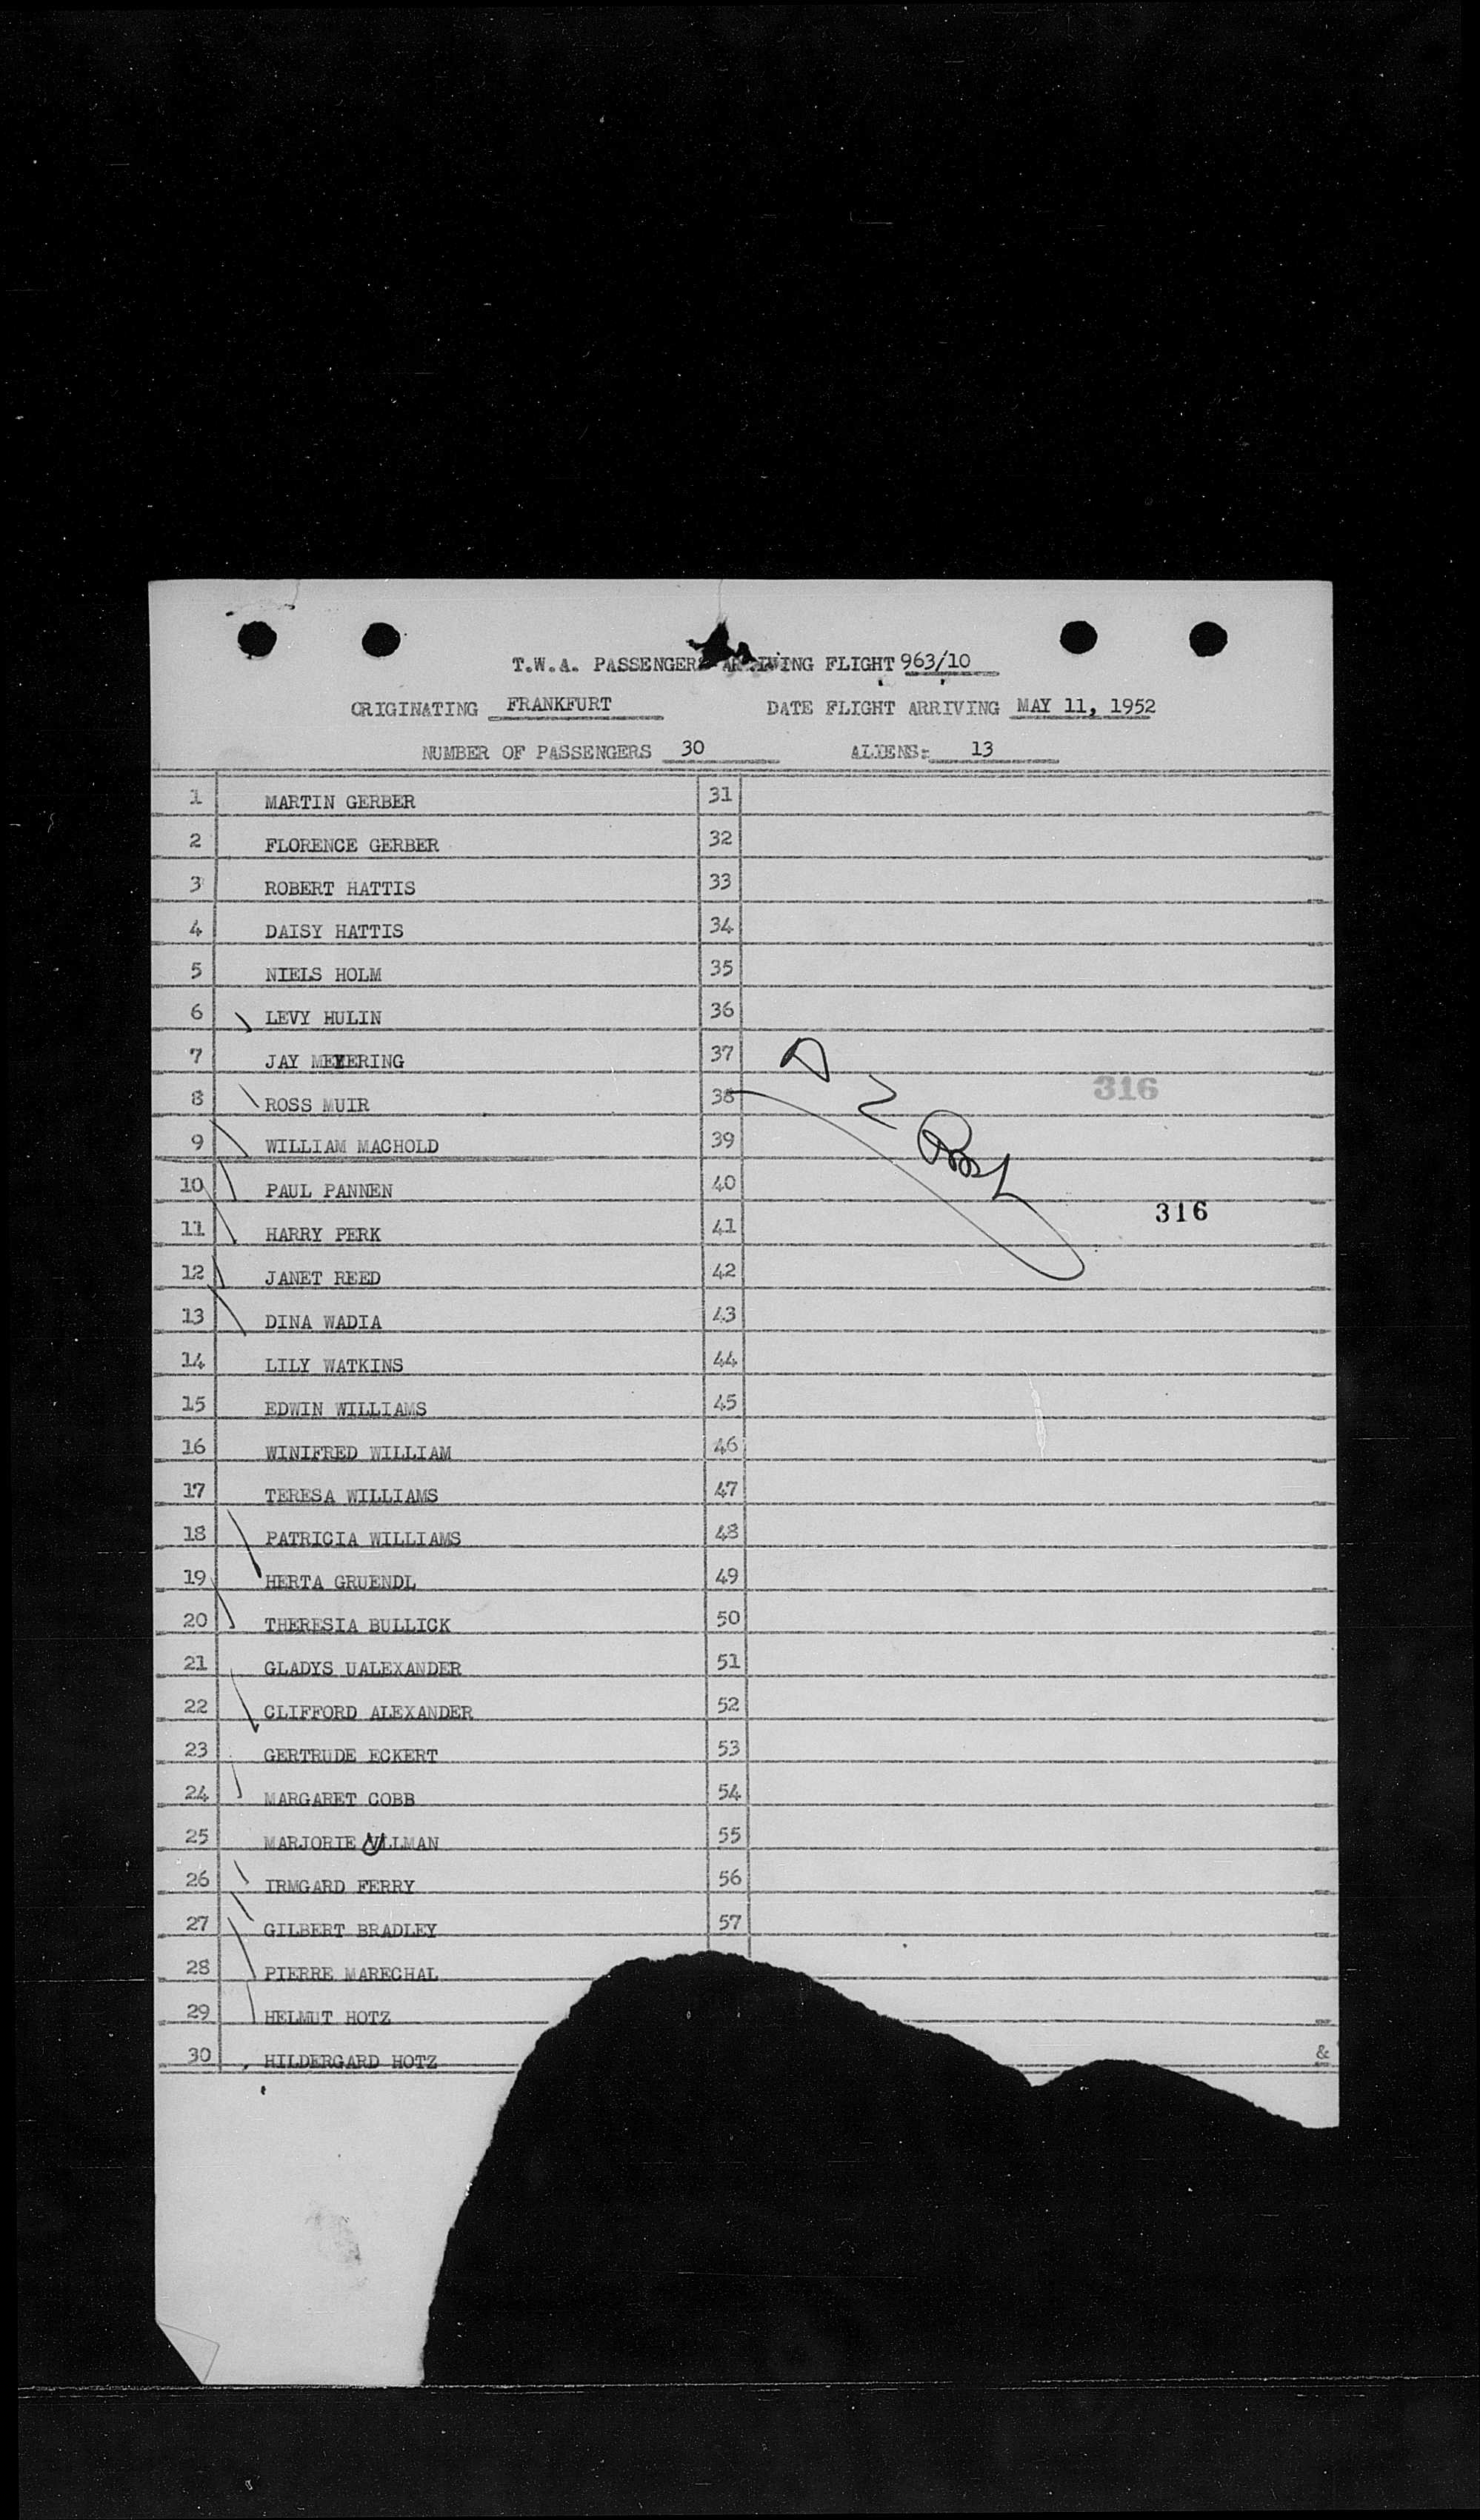 T.W.A. PASSENGERS ARRIVING FLIGHT 963/10
ORIGINATING FRANKFURT DATE FLIGHT ARRIVING MAY 11, 1952
NUMBER OF PASSENGERS 30 ALIENS: 13
1 MARTIN GERBER 31
2 FLORENCE GERBER 32
3 ROBERT HATTIS 33
4 DAISY HATTIS 34
5 NIELS HOLM 35
6 LEVY HULIN 36
7 JAY MEYERING 37
8 ROSS MUIR 38 316
9 WILLIAM MACHOLD 39
10 PAUL PANNEN 40
316
11 HARRY PERK 41
12 JANET REED 42
13 DINA WADIA 43
14 LILY WATKINS 44
15 EDWIN WILLIAMS 45
16 WINIFRED WILLIAM 46
17 TERESA WILLIAMS 47
18 PATRICIA WILLIAMS 48
19 HERTA GRUENDL 49
20 THERESIA BULLICK 50
21 GLADYS UALEXANDER 51
22 CLIFFORD ALEXANDER 52
23 GERTRUDE ECKERT 53
24 MARGARET COBB 54
25 MARJORIE ULLMAN 55
26 IRMGARD FERRY 56
27 GILBERT BRADLEY 57
28 PIERRE MARECHAL
29 HELMUT HOTZ
30 HILDERGARD HOTZ &